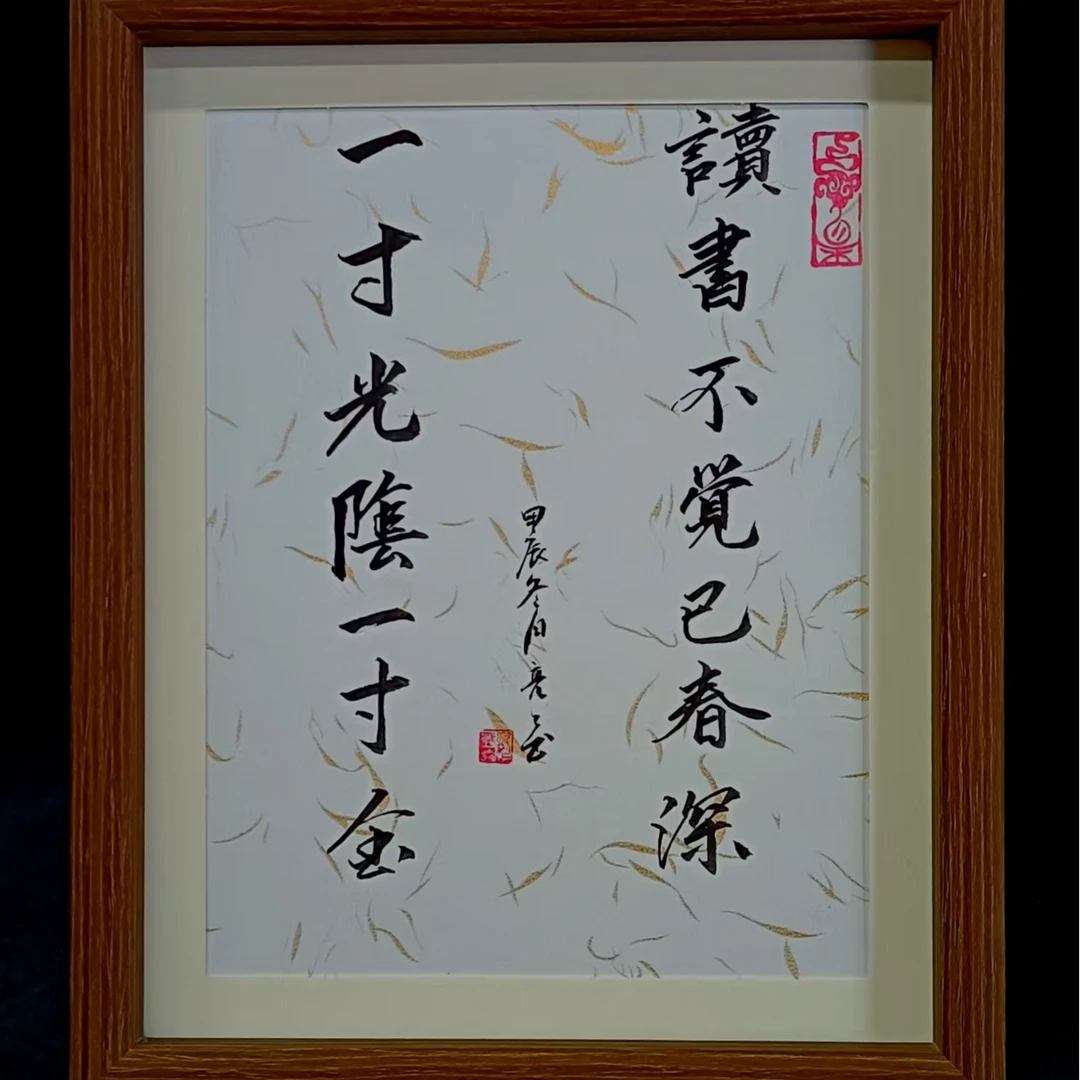 讀書不覺已春深
一寸光陰一寸金
甲辰冬月亮之書